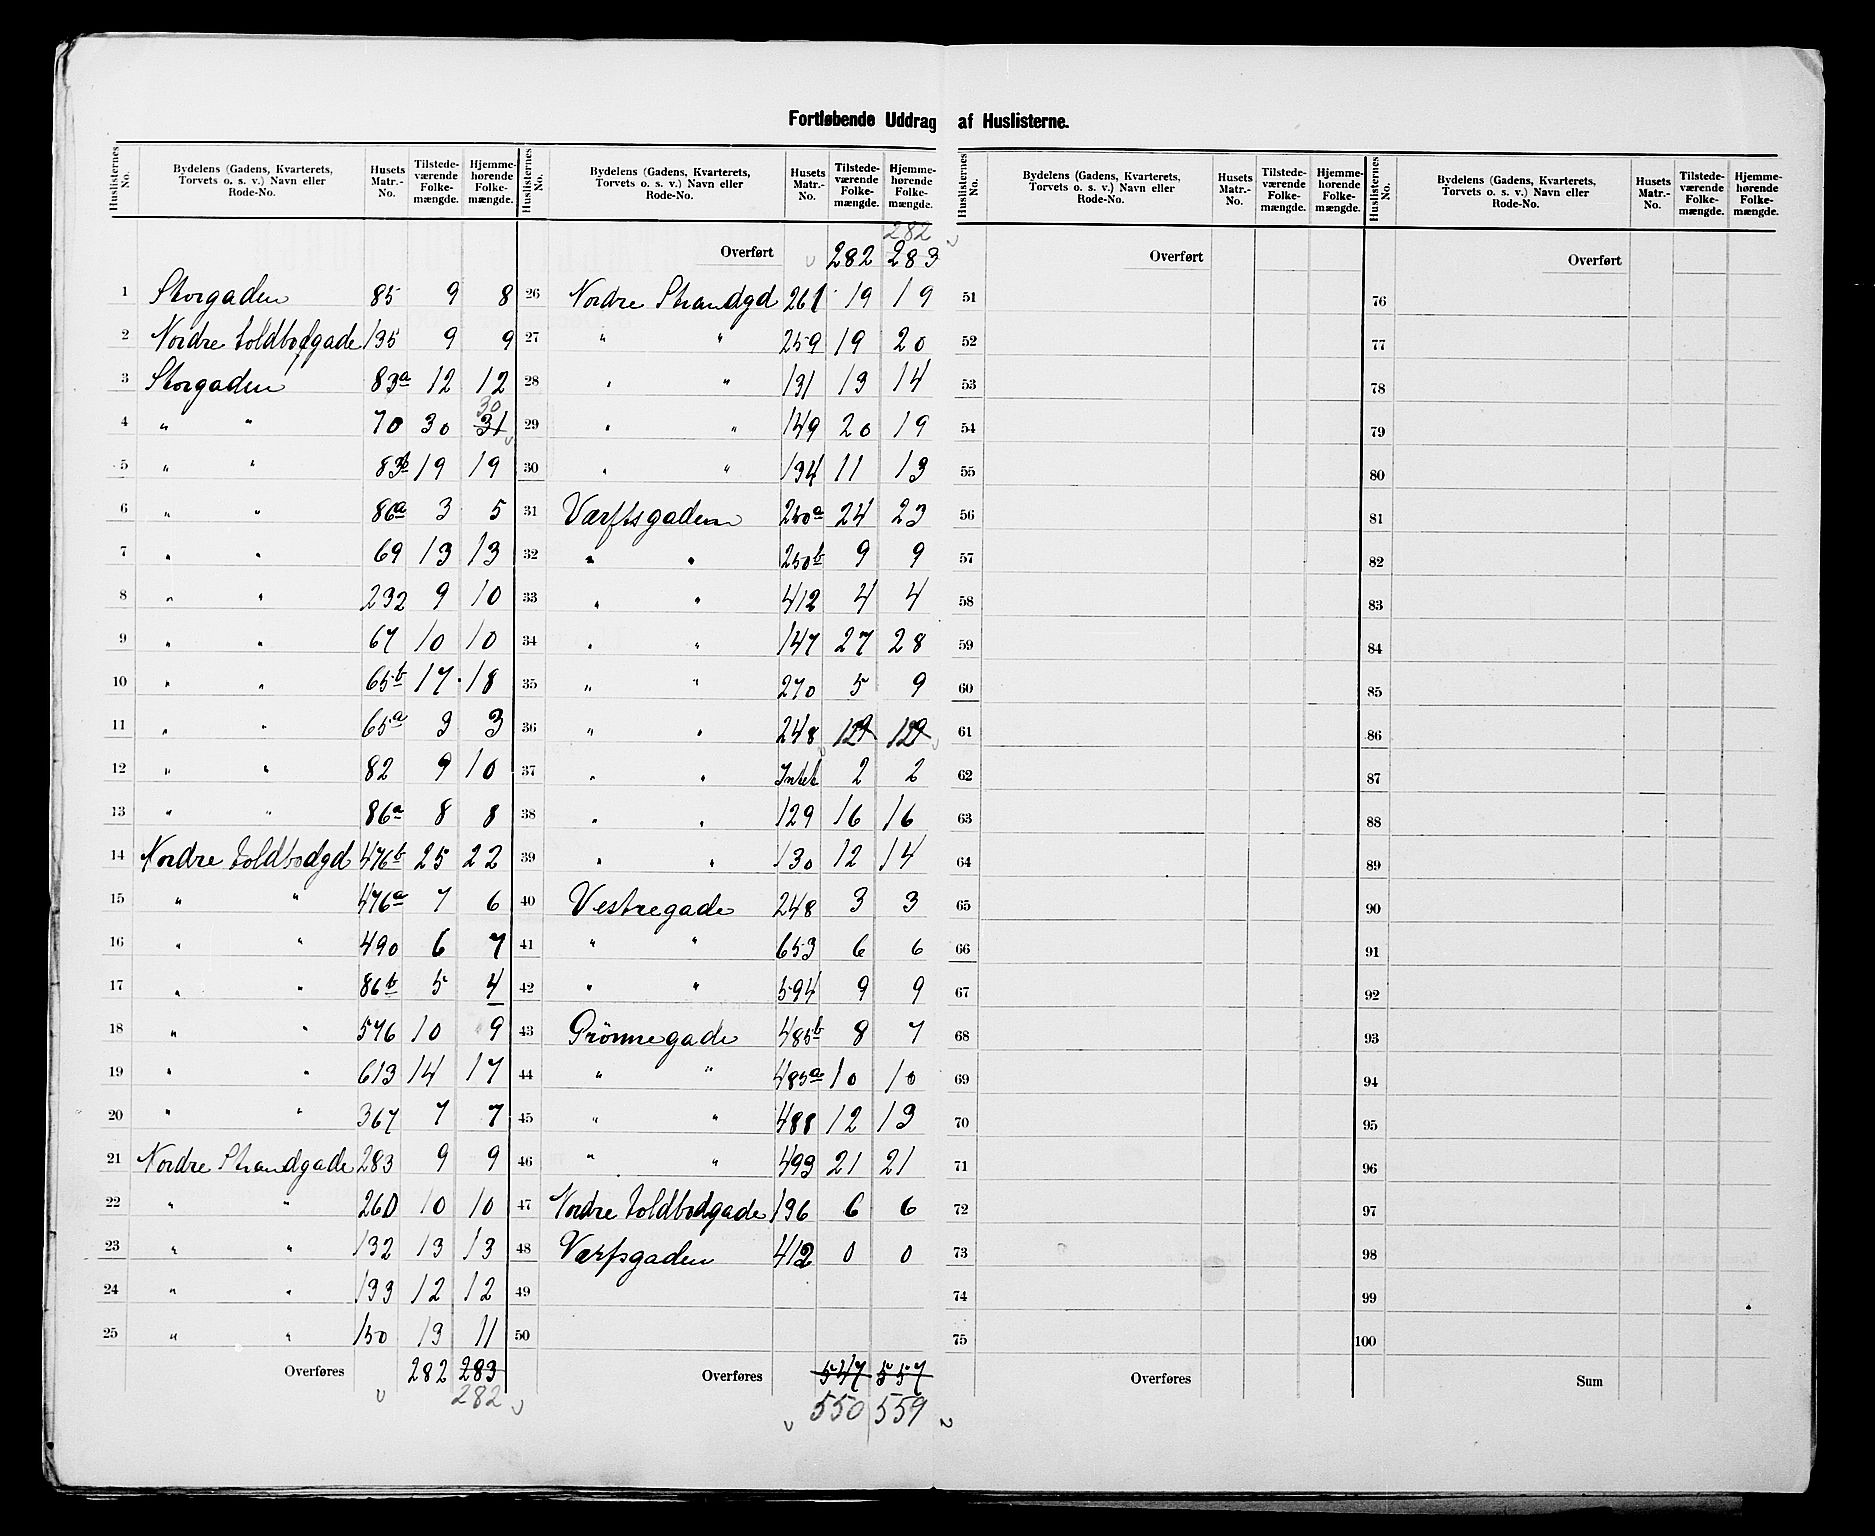 Fortløbende Uddrag af Huslisterne.
Huslisternes No. Bydelens (Gadens, Kvarterets, Torvets o. s. v.) Navn eller Rode-No. Husets Matr.-No. Tilstedeværende Folkemængde. Hjemmehørende Folkemængde.
1 Storgaden 85 9 8
2 Nordre Toldbodgade 135 9 9
3 Storgaden 83a 12 12
30
4 " " 70 30 31
5 " " 83b 19 19
6 " " 86a 3 5
7 " " 69 13 13
8 " " 232 9 10
9 " " 67 10 10
10 " " 65b 17 18
11 " " 65a 3 3
12 " " 82 9 10
13 " " 86a 8 8
14 Nordre Toldbodgd 476b 25 22
15 " " 476a 7 6
16 " " 490 6 7
17 " " 86b 5 4
18 " " 576 10 9
19 " " 613 14 17
20 " " 367 7 7
21 Nordre Strandgade 283 9 9
22 " " 260 10 10
23 " " 132 13 13
24 " " 133 12 12
25 " " 150 13 11
Overføres 282 283
282
Huslisternes No. Bydelens (Gadens, Kvarterets, Torvets o. s. v.) Navn eller Rode-No. Husets Matr.-No. Tilstedeværende Folkemængde. Hjemmehørende Folkemængde.
282
Overført 282 283
26 Nordre Strandgd 261 19 19
27 " " 259 19 20
28 " " 131 13 14
29 " " 149 20 19
30 " " 134 11 13
31 Værftsgaden 250a 24 23
32 " " 250b 9 9
33 " " 412 4 4
34 " " 147 27 28
35 " " 270 5 9
36 " " 248
37 " " Intet 2 2
38 " " 129 16 16
39 " " 130 12 14
40 Vestregade 248 3 3
41 " " 653 6 6
42 " " 594 9 9
43 Grönnegade 485b 8 7
44 " " 485a 10 10
45 " " 488 12 13
46 " " 493 21 21
47 Nordre Toldbodgade 136 6 6
48 Værfsgaden 412 0 0
49
50
Overføres 547 557
550 559
Huslisternes No. Bydelens (Gadens, Kvarterets, Torvets o. s. v.) Navn eller Rode-No. Husets Matr.-No. Tilstedeværende Folkemængde. Hjemmehørende Folkemængde.
Overført
51
52
53
54
55
56
57
58
59
60
61
62
63
64
65
66
67
68
69
70
71
72
73
74
75
Overføres
Huslisternes No. Bydelens (Gadens, Kvarterets, Torvets o. s. v.) Navn eller Rode-No. Husets Matr.-No. Tilstedeværende Folkemængde. Hjemmehørende Folkemængde.
Overført
76
77
78
79
80
81
82
83
84
85
86
87
88
89
90
91
92
93
94
95
96
97
98
99
100
Sum